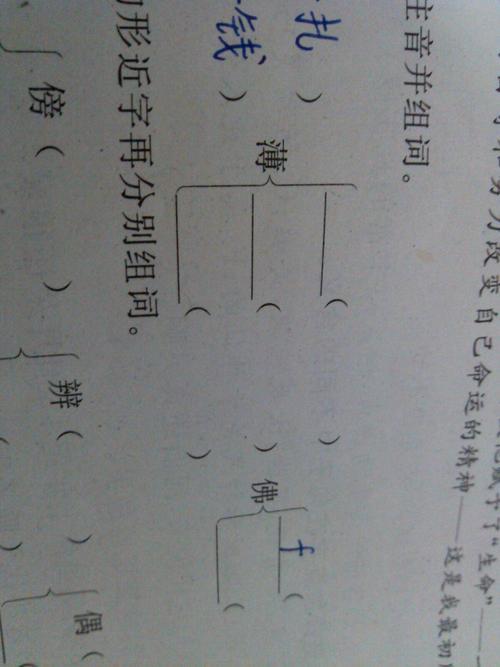 赋予了“生命”——
努力改变自己命运的精神——这是我最初
音并组词。
扎 ） （ ） f （
薄 （ ） 佛
钱 ） （ ） （
形近字再分别组词。
傍（ ） 辨（ ） 偶（